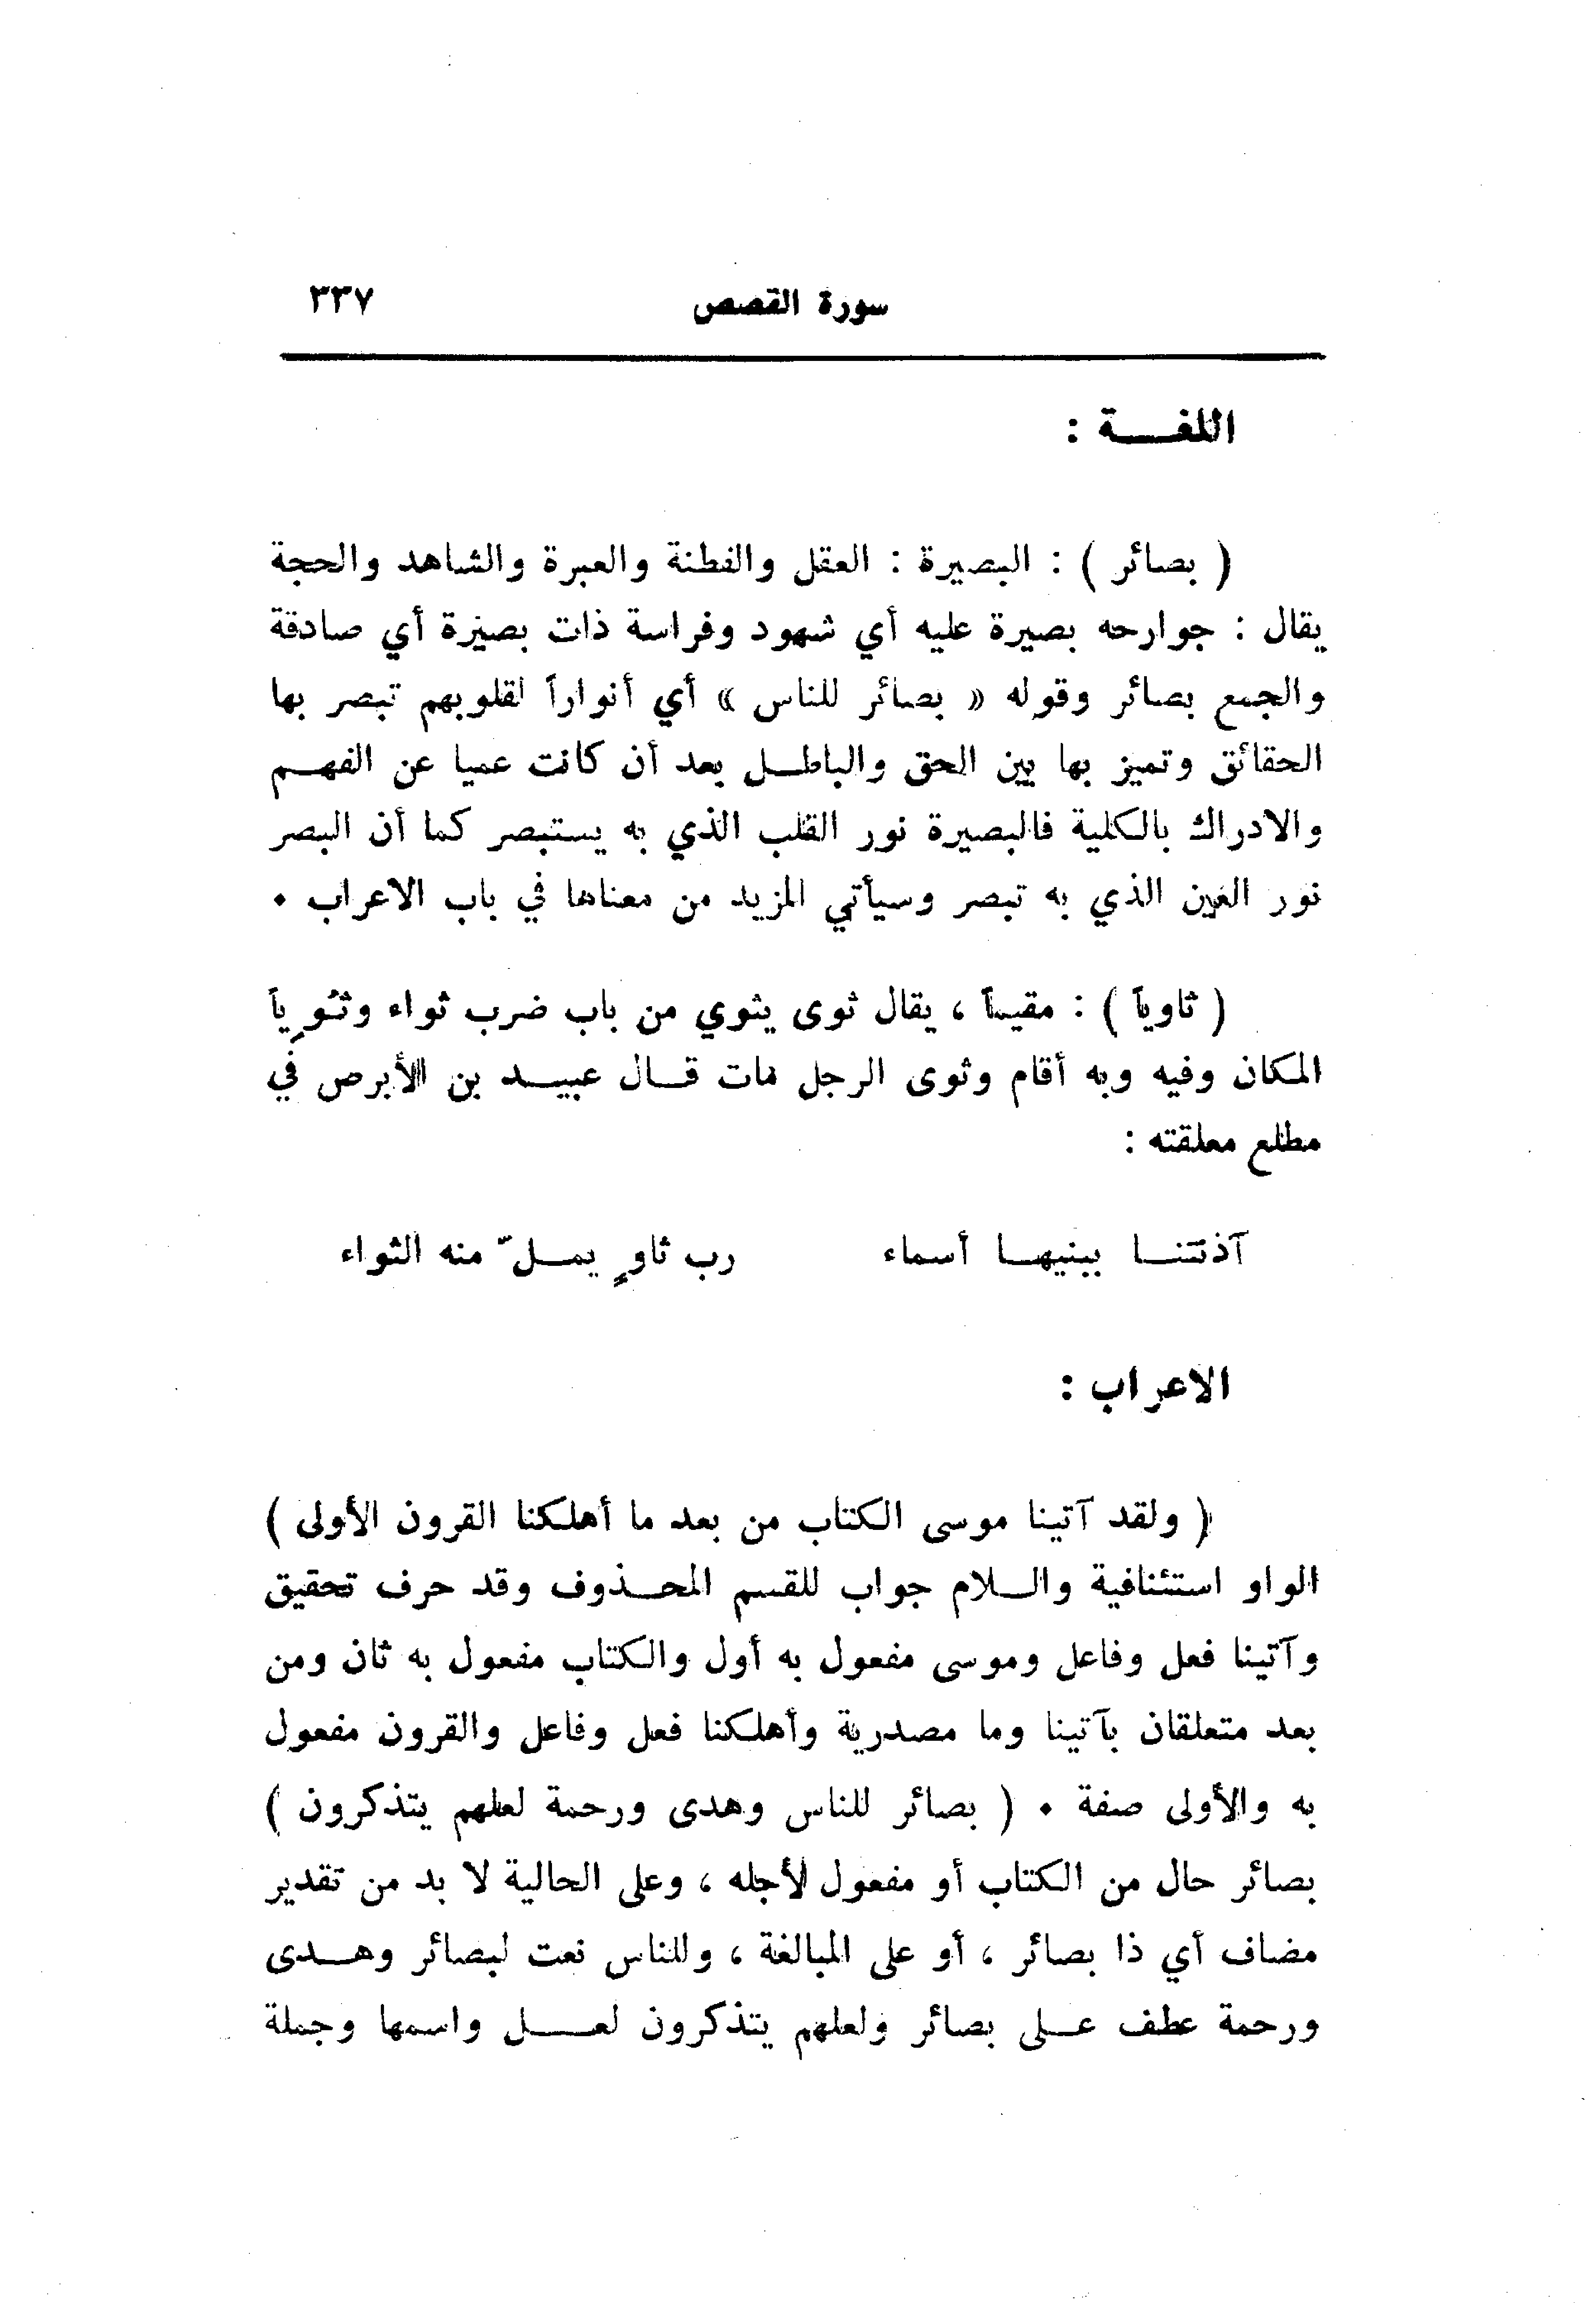 سورة القصص ٣٣٧
اللغــــة :
( بصائر ) : البصيرة : العقل والفطنة والعبرة والشاهد والحجة
يقال : جوارحه بصيرة عليه أي شهود وفراسة ذات بصيرة أي صادقة
والجمع بصائر وقوله « بصائر للناس » أي أنواراً لقلوبهم تبصر بها
الحقائق وتميز بها بين الحق والباطــل بعد أن كانت عميا عن الفهــم
والادراك بالكلية فالبصيرة نور القلب الذي به يستبصر كما أن البصر
نور العين الذي به تبصر وسيأتي المزيد من معناها في باب الاعراب .
( ثاوياً ) : مقيماً ، يقال ثوى يثوي من باب ضرب ثواء وثُوِياً
المكان وفيه وبه أقام وثوى الرجل مات قــال عبيــد بن الأبرص في
مطلع معلقته :
آذنتنــا ببنيهــا أسماء رب ثاوٍ يمــلّ منه الثواء
الاعراب :
( ولقد آتينا موسى الكتاب من بعد ما أهلكنا القرون الأولى )
الواو استئنافية والــلام جواب للقسم المحــذوف وقد حرف تحقيق
وآتينا فعل وفاعل وموسى مفعول به أول والكتاب مفعول به ثان ومن
بعد متعلقان بآتينا وما مصدرية وأهلكنا فعل وفاعل والقرون مفعول
به والأولى صفة . ( بصائر للناس وهدى ورحمة لعلهم يتذكرون )
بصائر حال من الكتاب أو مفعول لأجله ، وعلى الحالية لا بد من تقدير
مضاف أي ذا بصائر ، أو على المبالغة ، وللناس نعت لبصائر وهــدى
ورحمة عطف عــلى بصائر ولعلهم يتذكرون لعــــل واسمها وجملة